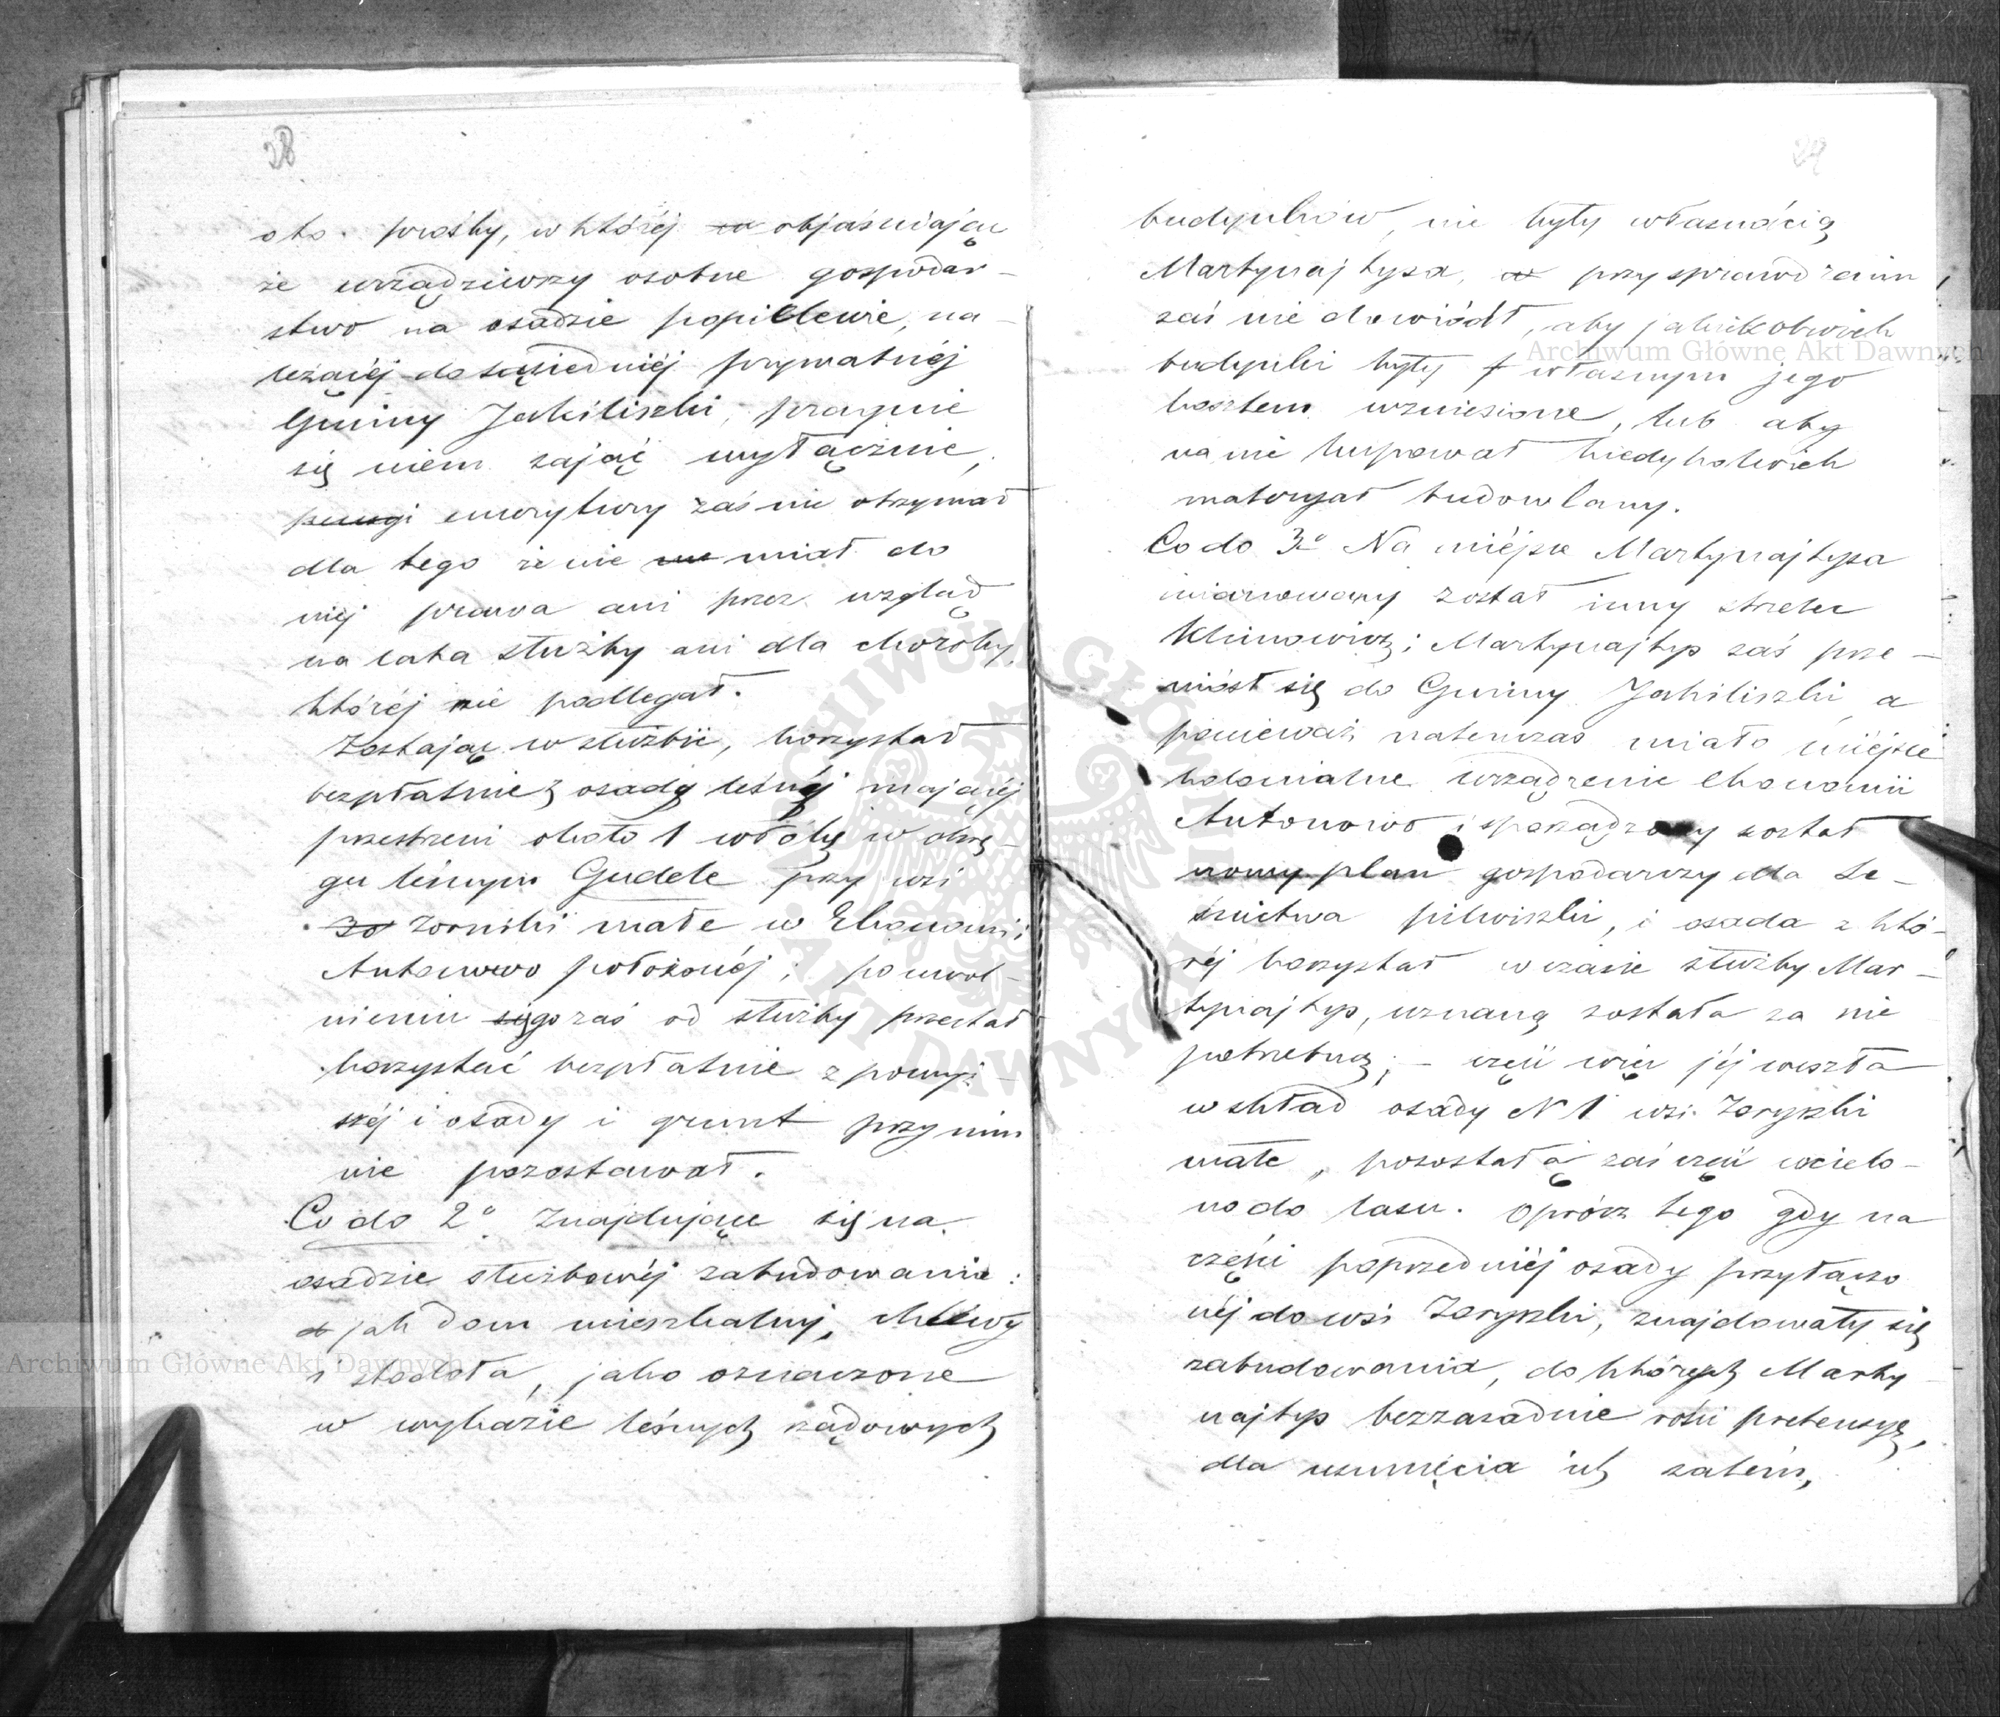 28
oto prośby, w którój objaśniając
że urządziwszy osobne gospodar-
stwo na osadzie popillewie, na-
leżąéj do sąsiedniéj prywatnéj
Gminy Jakiliszki, pragnie
się niem zająć wyłącznie,
emerytury zaś nie otrzymał
dla tego że nie miał do
niéj prawa ani przez wzgląd
na lata służby ani dla choroby,
któréj nie podlegał.
Zostając w służbie, korzystał
bezpłatnie z osady leśnéj mającéj
przestrzeni około 1 włókę w okrę-
gu leśnym Gudele przy wsi
Zorniki małe w Ekonomii
Antonowo położonéj; po uwol-
nieniu go zaś od służby przestał
korzystać bezpłatnie z powyż-
széj osady i grunt przy nim
nie pozostawał.
Co do 2º Znajdujące się na
osadzie służbowéj zabudowania:
jak dom mieszkalny, chlewy
i stodoła, jako oznaczone
w wykazie leśnych rządowych
29
budynków, nie były własnością
Martynajtysa, przy sprawdzeniu
zaś nie dowiódł, aby jakiekolwiek
budynki były własnym jego
kosztem wzniesione, lub aby
na nie kupował kiedykolwiek
materyał budowlany.
Co do 3º Na miéjsce Martynajtysa
mianowany został inny strzelec
Klimowicz; Martynajtys zaś prze-
niósł się do Gminy Jakiliszki a
ponieważ natenczas miało miéjsce
kolonialne urządzenie Ekonomii
Antonowo i sporządzony został
nowy plan gospodarczy dla Le-
śnictwa pilwiszki, i osada z któ-
réj korzystał w czasie służby Mar-
tynajtys, uznaną została za nie
potrzebną; - część więc jéj weszła
w skład osady N 1 wsi Zoryszki
małe, pozostałą zaś część wcielo-
no do lasu. Oprócz tego gdy na
części poprzedniéj osady przyłączo
néj do wsi Zoryszki, znajdowały się
zabudowania, do których Marty
najtys bezzasadnie rości pretensyę,
dla usunięcia ich zatém,
Archiwum Główne Akt Dawnych
Archiwum Główne Akt Dawnych
ARCHIWUM GŁÓWNE AKT DAWNYCH